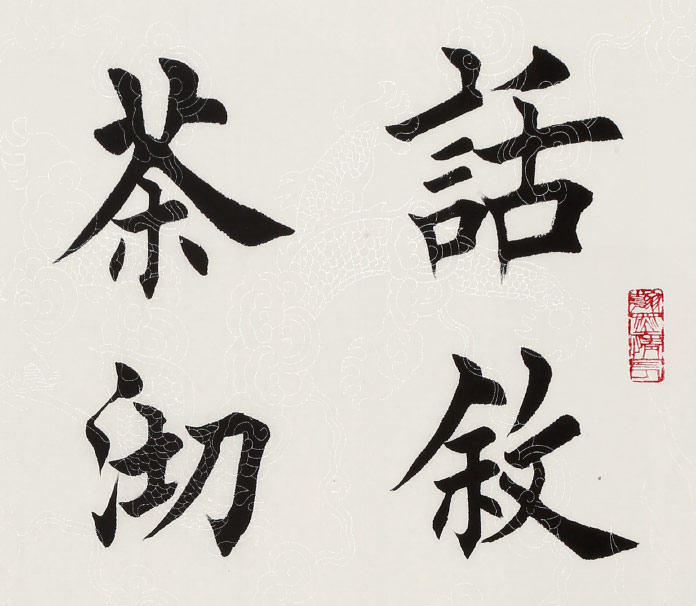 話敘
茶沏